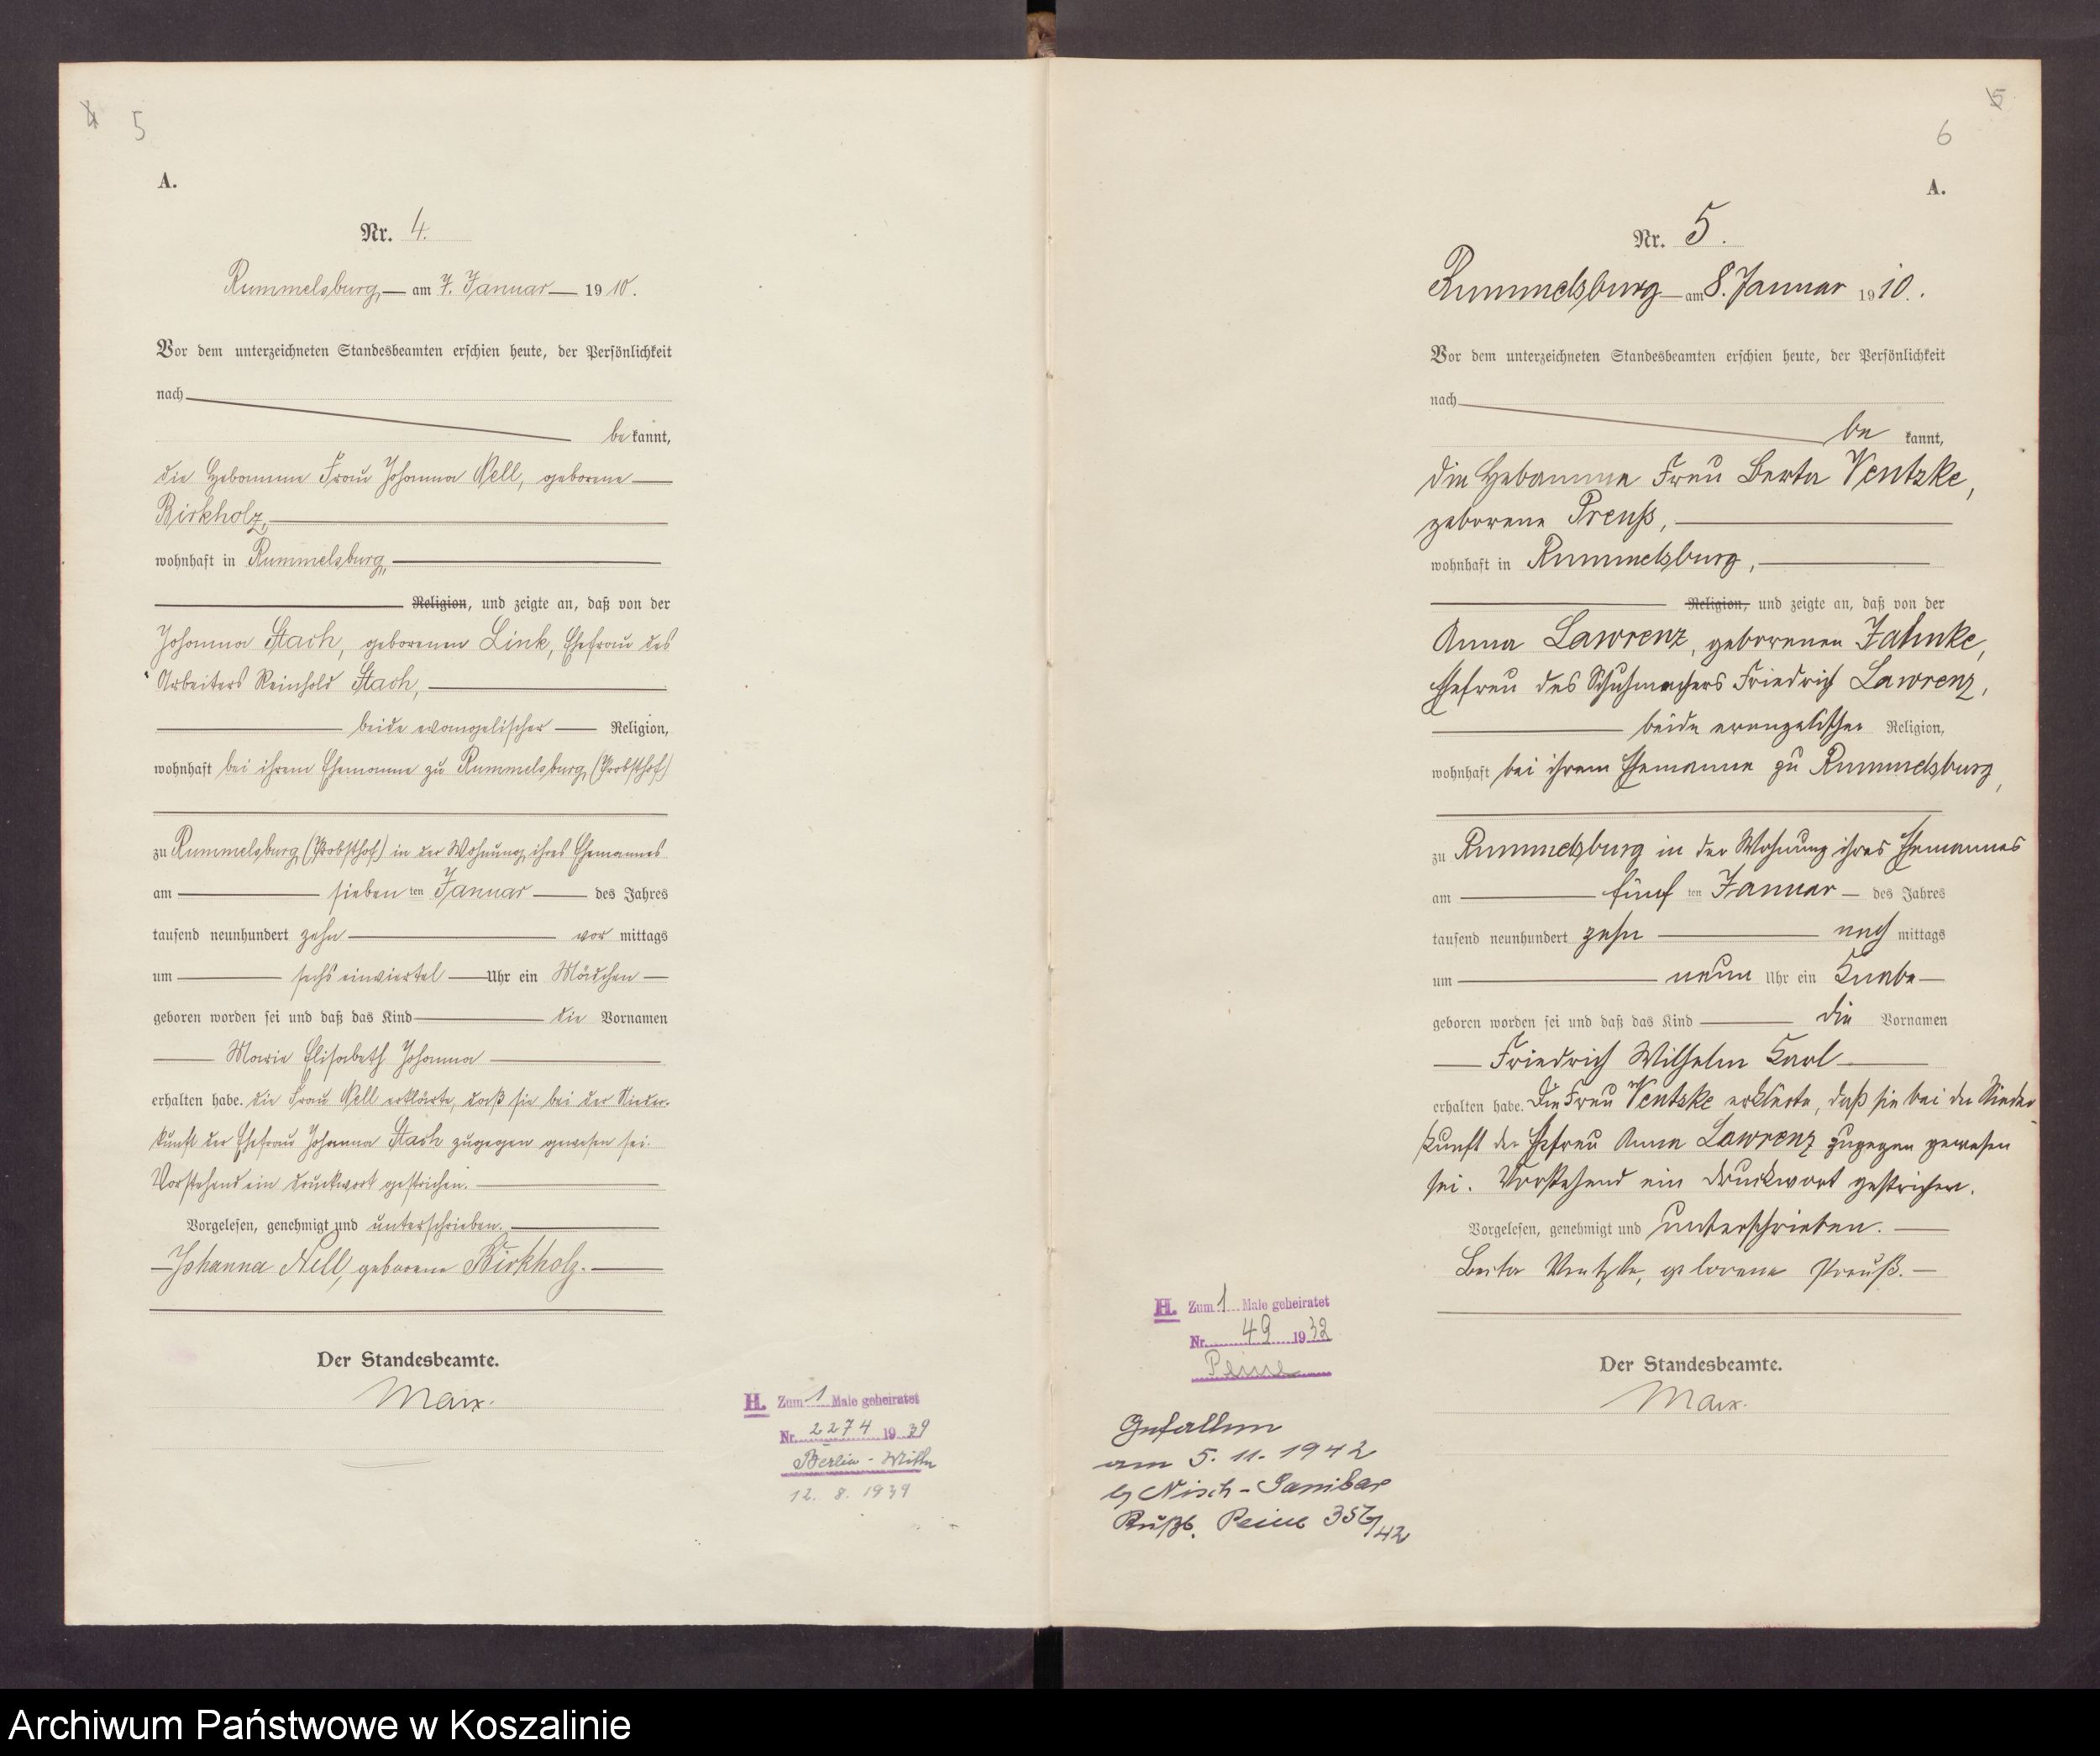 4
5
A.
Nr. 4.
Rummelsburg, am 7. Januar 1910.
Vor dem unterzeichneten Standesbeamten erschien heute, der Persönlichkeit
nach
bekannt,
die Hebamme Frau Johanna Nell, geborene
Birkholz,
wohnhaft in Rummelsburg,
Religion, und zeigte an, daß von der
Johanna Stach, geborenen Link, Ehefrau des
Arbeiters Reinhold Stach,
beide evangelischer Religion,
wohnhaft bei ihrem Ehemanne zu Rummelsburg (Probsthof)
zu Rummelsburg (Probsthof) in der Wohnung ihres Ehemannes
am siebenten Januar des Jahres
tausend neunhundert zehn vor mittags
um sechs einviertel Uhr ein Mädchen
geboren worden sei und daß das Kind die Vornamen
Marie Elisabeth Johanna
erhalten habe. Die Frau Nell erklärte, daß sie bei der Nieder-
kunft der Ehefrau Johanna Stach zugegen gewesen sei.
Vorstehend ein Druckwort gestrichen.
Vorgelesen, genehmigt und unterschrieben.
Johanna Nell, geborene Birkholz.
Der Standesbeamte.
Marx.
H. Zum 1 Male geheiratet
Nr. 2274 1939
Berlin-Wilm
12. 8. 1939
5
6
A.
Nr. 5.
Rummelsburg am 8. Januar 1910.
Vor dem unterzeichneten Standesbeamten erschien heute, der Persönlichkeit
nach
be kannt,
die Hebamme Frau Berta Ventzke,
geborene Preuß,
wohnhaft in Rummelsburg,
Religion, und zeigte an, daß von der
Anna Lawrenz, geborenen Jahnke,
Ehefrau des Schuhmachers Friedrich Lawrenz,
beide evangelischer Religion,
wohnhaft bei ihrem Ehemanne zu Rummelsburg,
zu Rummelsburg in der Wohnung ihres Ehemannes
am fünf ten Januar des Jahres
tausend neunhundert zehn nach mittags
um neun Uhr ein Knabe
geboren worden sei und daß das Kind die Vornamen
Friedrich Wilhelm Karl
erhalten habe. Die Frau Ventzke erklärte, daß sie bei der Nieder-
kunft der Ehefrau Anna Lawrenz zugegen gewesen
sei. Vorstehend ein Druckwort gestrichen.
Vorgelesen, genehmigt und unterschrieben.
Berta Ventzke, geborene Preuß.
Der Standesbeamte.
Marx.
H. Zum 1 Male geheiratet
Nr. 49 1932
Peine
Gefallen
am 5. 11. 1942
Nisch-
Rußl. Peine 42
Archiwum Państwowe w Koszalinie